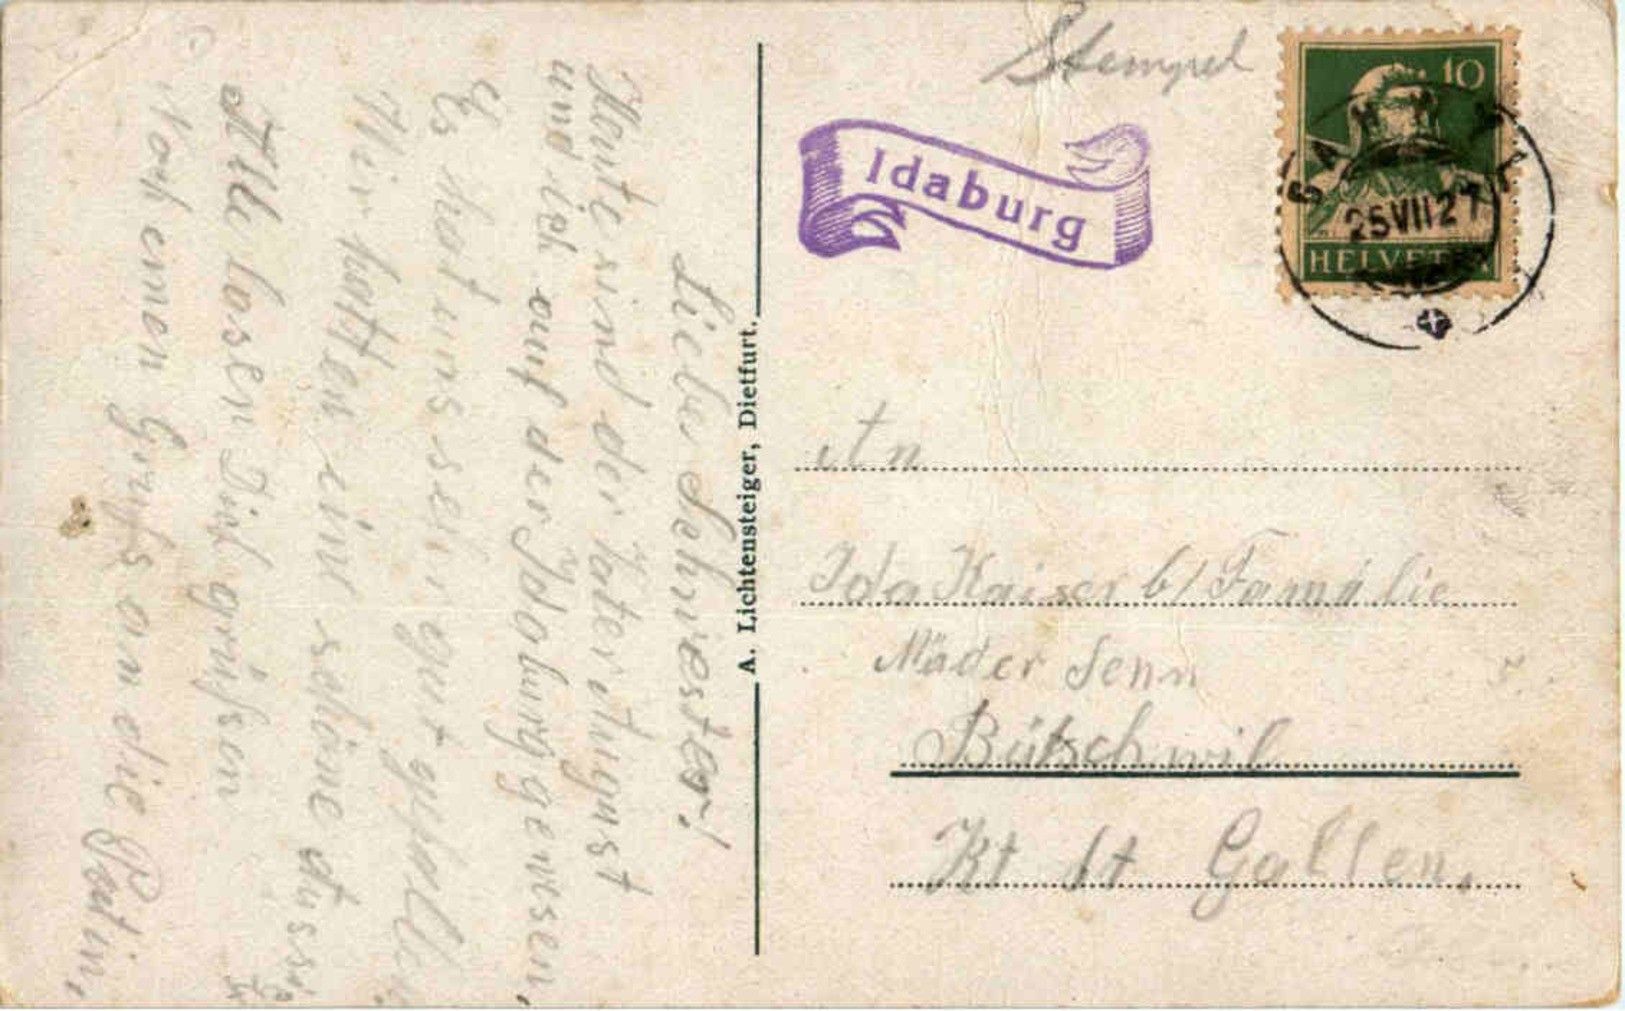 Stempel
10
25VII27
HELVETIA
Idaburg
Liebe Schwester!
Heute sind der Vater August
und ich auf der Idaburg gewesen,
Es hat uns sehr gut gefallen
Wir hatten eine schöne Aussicht
Alle lassen Dich grüssen
Noch einen Gruss an die Patin,
A. Lichtensteiger, Dietfurt.
An
Ida Kaiser b/ Familie
Mäder Senn
Bütschwil
Kt St Gallen.